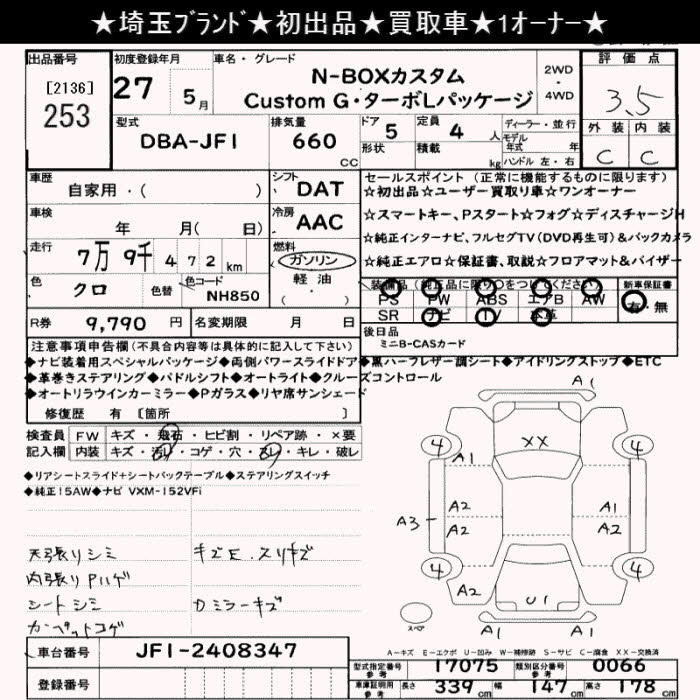 ★埼玉ﾌﾞﾗﾝﾄﾞ★初出品★買取車★1オーナー★
出品番号
[2136]
253
初度登録年月
27 5月
車名・グレード
N-BOXカスタム
Custom G・ターボLパッケージ
2WD
・
4WD
評価点
3.5
外装 内装
C C
型式
DBA-JF1
排気量
660
CC
ドア 5
形状
定員 4 人
積載 kg
ディーラー・並行
モデル
年式 年
ハンドル 左・右
車歴
自家用・( )
シフト
DAT
車検
年 月( 日)
冷房
AAC
走行
7万 9千 472 km
燃料
ガソリン
軽油・
( )
色
クロ
色替
色コード
NH850
R券 9,790 円
名変期限 月 日
セールスポイント (正常に機能するものに限ります)
☆初出品☆ユーザー買取り車☆ワンオーナー
☆スマートキー、Pスタート☆フォグ☆ディスチャージH
☆純正インターナビ、フルセグTV(DVD再生可)&バックカメラ
☆純正エアロ☆保証書、取説☆フロアマット&バイザー
装備品(純正品に限り○をつけてください)
新車保証書
PS PW ABS エアB AW
SR ナビ TV 本革
有・無
後日品
ミニB-CASカード
注意事項申告欄(不具合内容等は具体的に記入して下さい)
◆ナビ装着用スペシャルパッケージ◆両側パワースライドドア◆黒ハーフレザー調シート◆アイドリングストップ◆ETC
◆革巻きステアリング◆パドルシフト◆オートライト◆クルーズコントロール
◆オートリラウインカーミラー◆Pガラス◆リヤ席サンシェード
修復歴 有 〔箇所 〕
検査員 FW キズ・飛石・ヒビ割・リペア跡・×要
記入欄 内装 キズ・汚れ・コゲ・穴・スレ・キレ・破レ
◆リアシートスライド+シートバックテーブル◆ステアリングスイッチ
◆純正15AW◆ナビ VXM-152VFi
天張りシミ キズE、スリキズ
内張りPハゲ
シートシミ Dミラーキズ
カーペットコゲ
A1
XX
4 4
A1
A2 A1
A3 A2 A2
4 4
A2
U1
スペア
A1 A1
A-キズ E-エクボ U-凹み W-補修跡 S-サビ C-腐食 XX-交換済
車台番号 JF1-2408347
登録番号
型式指定番号
参考
17075
類別区分番号
参考
0066
車庫証明用
参考
長さ 339 cm 幅 147 cm 高さ 178 cm